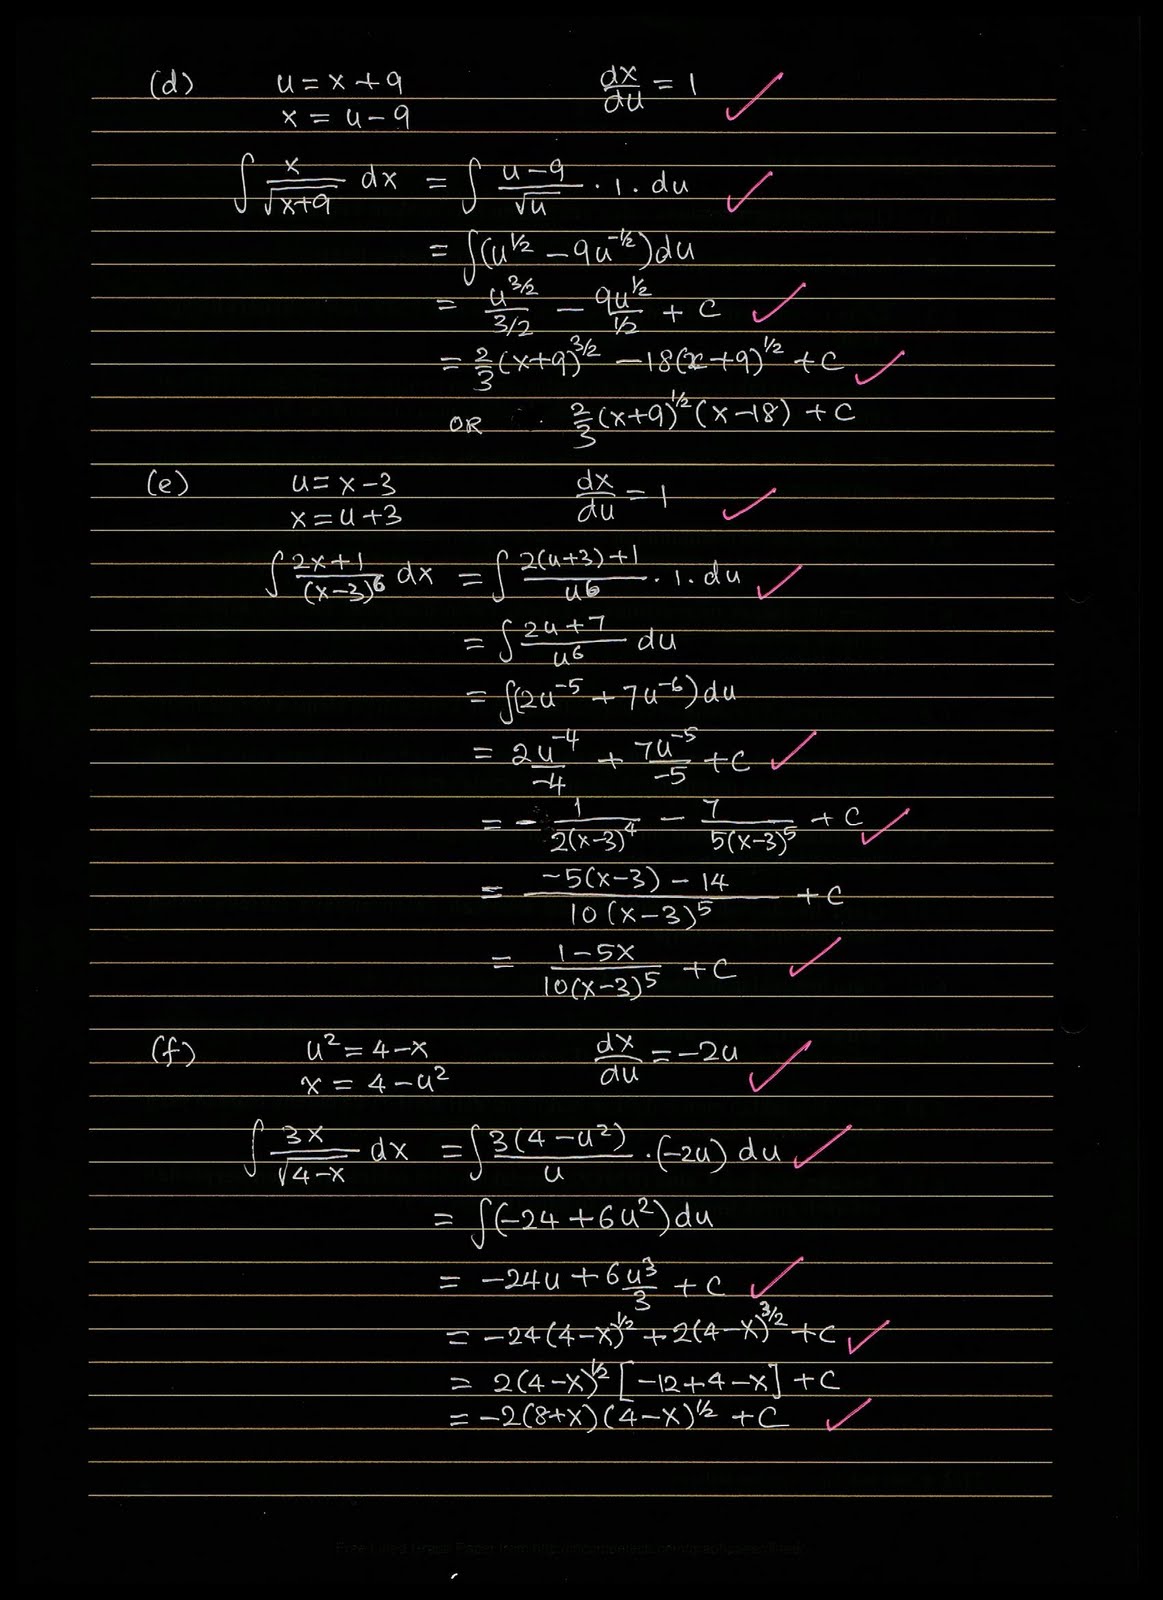 (d) u = x + 9 dx/du = 1
x = u - 9
∫ x/√(x+9) dx = ∫ (u-9)/√u · 1 · du
= ∫(u^1/2 - 9u^-1/2)du
= u^3/2/(3/2) - 9u^1/2/(1/2) + C
= 2/3 (x+9)^3/2 - 18(x+9)^1/2 + C
OR 2/3 (x+9)^1/2 (x-18) + C
(e) u = x-3 dx/du = 1
x = u+3
∫ (2x+1)/(x-3)^6 dx = ∫ (2(u+3)+1)/u^6 · 1 · du
= ∫ (2u+7)/u^6 du
= ∫(2u^-5 + 7u^-6)du
= 2u^-4/-4 + 7u^-5/-5 + C
= - 1/(2(x-3)^4) - 7/(5(x-3)^5) + C
= (-5(x-3) - 14)/(10(x-3)^5) + C
= (1-5x)/(10(x-3)^5) + C
(f) u^2 = 4-x dx/du = -2u
x = 4-u^2
∫ 3x/√(4-x) dx = ∫ 3(4-u^2)/u · (-2u) du
= ∫(-24 + 6u^2)du
= -24u + 6u^3/3 + C
= -24(4-x)^1/2 + 2(4-x)^3/2 + C
= 2(4-x)^1/2 [-12+4-x] + C
= -2(8+x)(4-x)^1/2 + C